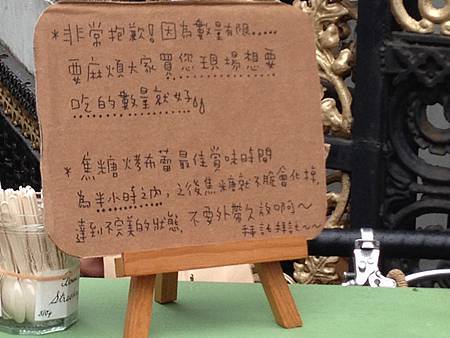 *非常抱歉!!因為數量有限......
要麻煩大家買您現場想要
吃的數量就好!!
*焦糖烤布蕾最佳賞味時間
為半小時之內,之後焦糖就不脆會化掉,
達到不完美的狀態,不要外帶久放啊~
拜託拜託~~
310g